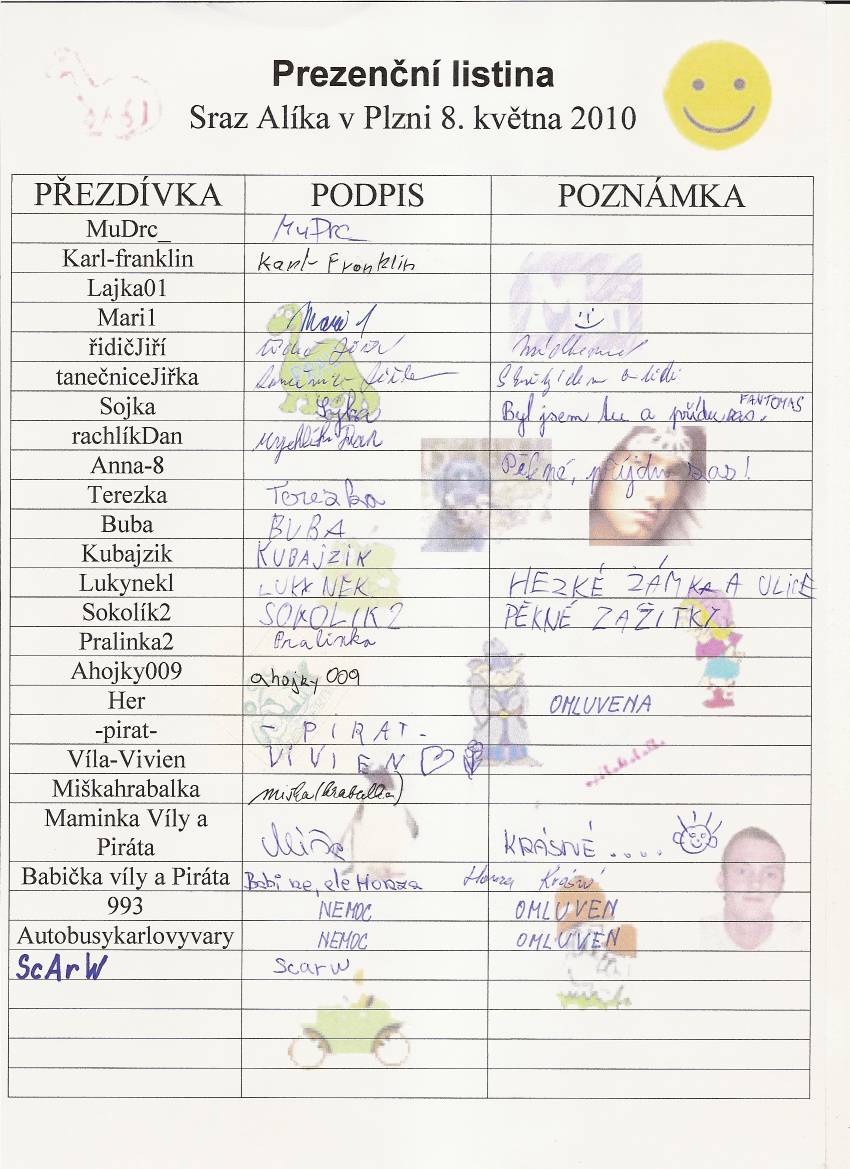 Prezenční listina
Sraz Alíka v Plzni 8. května 2010
PŘEZDÍVKA PODPIS POZNÁMKA
MuDrc_ MuDrc_
Karl-franklin Karl-Franklin
Lajka01
Mari1 Mari 1
řidičJiří Jiří
tanečniceJiřka
Sojka Sojka Byl jsem tu a přijdu zas. FANTOMAS
rachlíkDan
Anna-8 Pěkné, přijdu zas!
Terezka Terezka
Buba BUBA
Kubajzik KUBAJZIK
Lukynekl HEZKÉ ZÁMKA A ULICE
Sokolík2 SOKOLIK2 PĚKNÉ ZAŽITKY.
Pralinka2 Pralinka
Ahojky009 ahojky 009
Her OMLUVENA
-pirat- - PIRAT -
Víla-Vivien VIVIEN
Miškahrabalka miška(hrabalka)
Maminka Víly a
Piráta KRÁSNÉ ....
Babička víly a Piráta Babi ne, ale Honza Honza Krásné
993 NEMOC OMLUVEN
Autobusykarlovyvary NEMOC OMLUVEN
ScArW Scarw